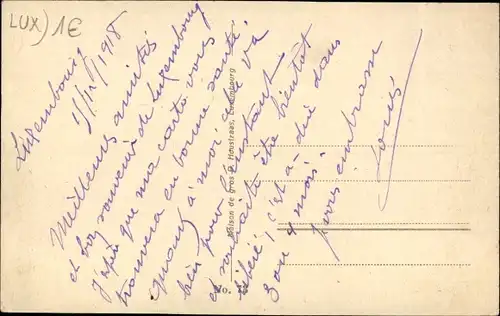 LUX) 1E
Luxembourg
5/12/1918
Meilleures amitiés
et bon souvenir de Luxembourg
J'espère que ma carte vous
trouvera en bonne santé.
Quant à moi, cela va
bien pour l'instant
et souhaite être bientôt
libéré, c'est-à-dire dans
3 ou 4 mois.
vous embrasse
Louis
Maison de gros P. Houstraas, Luxembourg
No.